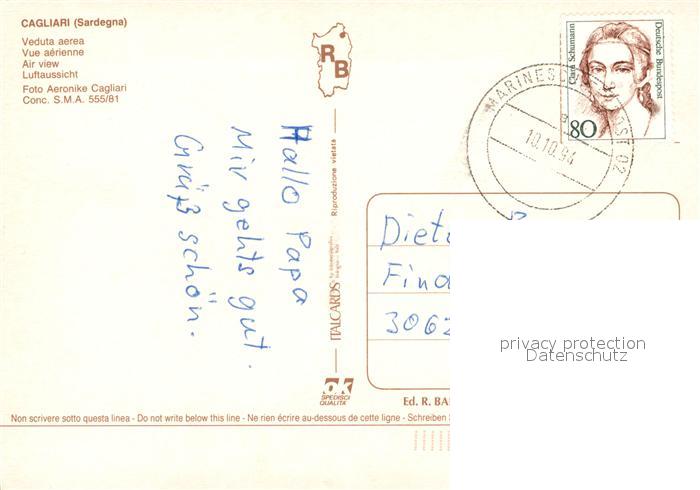 CAGLIARI (Sardegna)
Veduta aerea
Vue aérienne
Air view
Luftaussicht
Foto Aeronike Cagliari
Conc. S.M.A. 555/81
R
B
Clara Schumann
Deutsche Bundespost
80
10.10.94
02
Hallo Papa
Mir gehts gut.
Grüß schön.
Riproduzione vietata
ITALCARDS
OK
SPEDISCI
QUALITÀ
3062
Ed. R.
Non scrivere sotto questa linea - Do not write below this line - Ne rien écrire au-dessous de cette ligne - Schreiben
privacy protection
Datenschutz